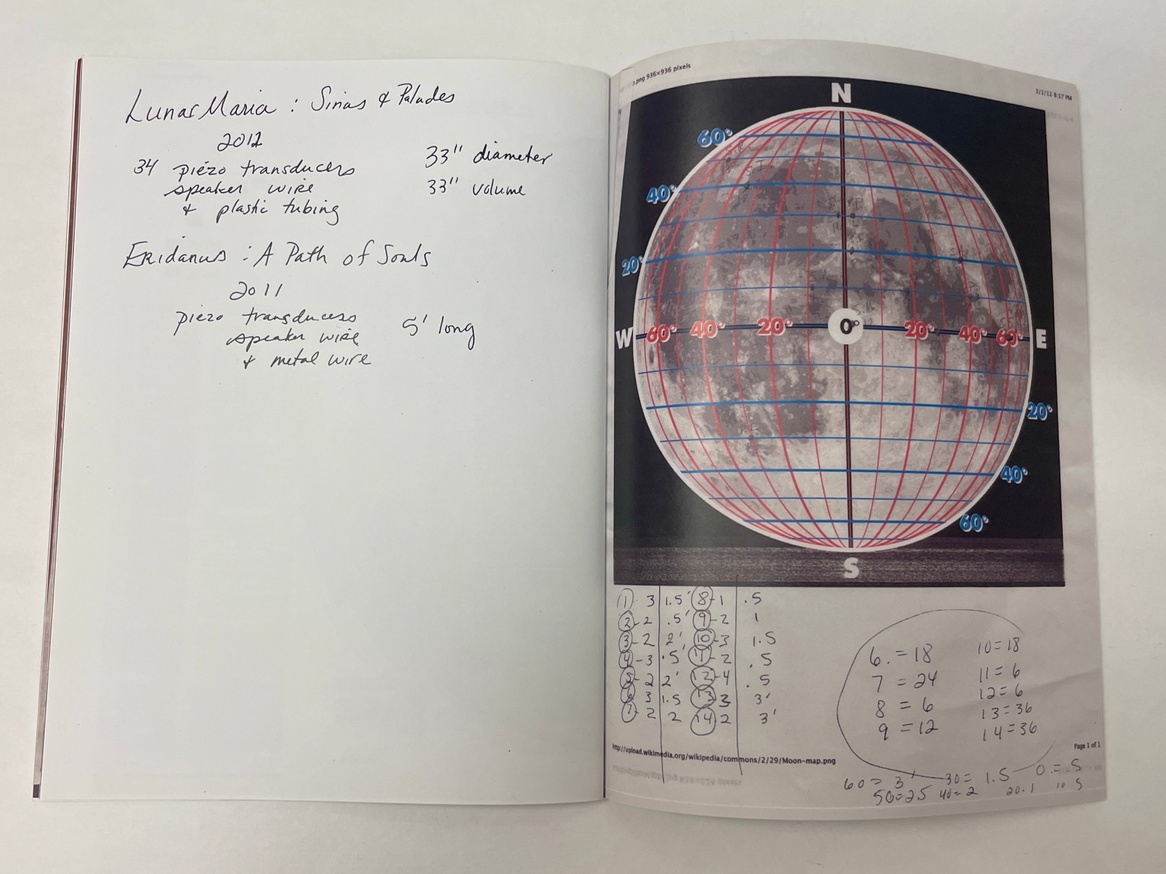 Lunar Maria : Sinas & Paludes
2012
34 piezo transducers
speaker wire
& plastic tubing
33" diameter
33" volume
Eridanus : A Path of Souls
2011
piezo transducers
speaker wire
& metal wire
5' long
.png 936×936 pixels
1/1/12 8:17 PM
N
60°
40°
20°
W 60° 40° 20° 0° 20° 40° 60° E
20°
40°
60°
S
1 3 1.5' 8-1 .5
2-2 .5' 9-2 1
3-2 2' 10-3 1.5
4-3 .5' 11-2 .5
5-2 2' 12-4 .5
6 3 1.5 13 3 3'
7-2 2 14 2 3'
6.=18 10=18
7=24 11=6
8=6 12=6
9=12 13=36
14=36
http://upload.wikimedia.org/wikipedia/commons/2/29/Moon-map.png
Page 1 of 1
60= 3' 30= 1.5 0.=.5
50=25 40=2 20.1 10 5